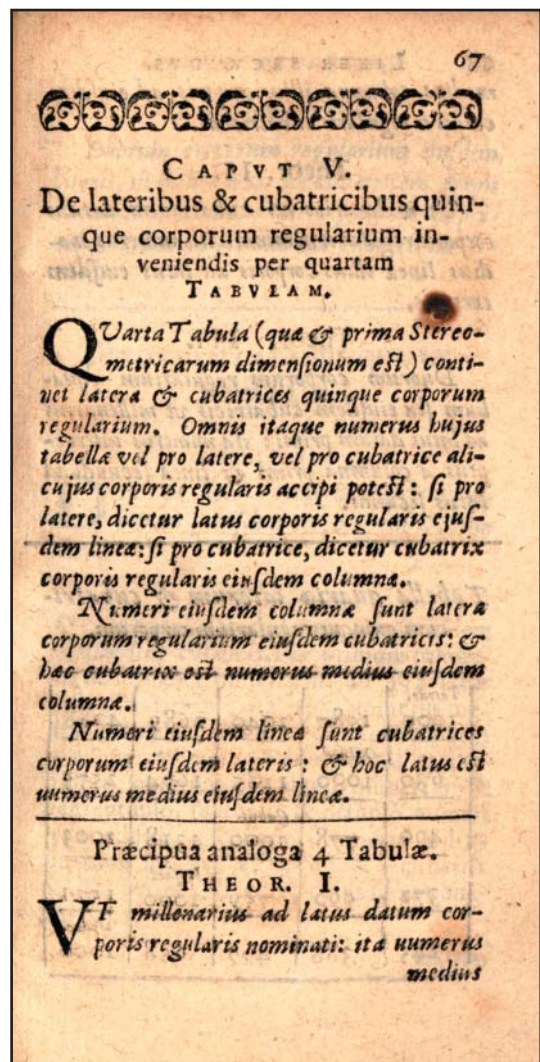 67
CAPVT V.
De lateribus & cubatricibus quin-
que corporum regularium in-
veniendis per quartam
TABVLAM.
QUarta Tabula (quæ & prima Stereo-
metricarum dimensionum est) conti-
net latera & cubatrices quinque corporum
regularium. Omnis itaque numerus hujus
tabellæ vel pro latere, vel pro cubatrice ali-
cujus corporis regularis accipi potest: si pro
latere, dicetur latus corporis regularis ejus-
dem lineæ: si pro cubatrice, dicetur cubatrix
corporis regularis eiusdem columnæ.
Numeri eiusdem columnæ sunt latera
corporum regularium eiusdem cubatricis: &
hæc cubatrix est numerus medius eiusdem
columnæ.
Numeri eiusdem lineæ sunt cubatrices
corporum eiusdem lateris : & hoc latus est
uumerus medius eiusdem lineæ.
Præcipua analoga 4 Tabulæ.
THEOR. I.
VT millenarius ad latus datum cor-
poris regularis nominati: ita uumerus
medius